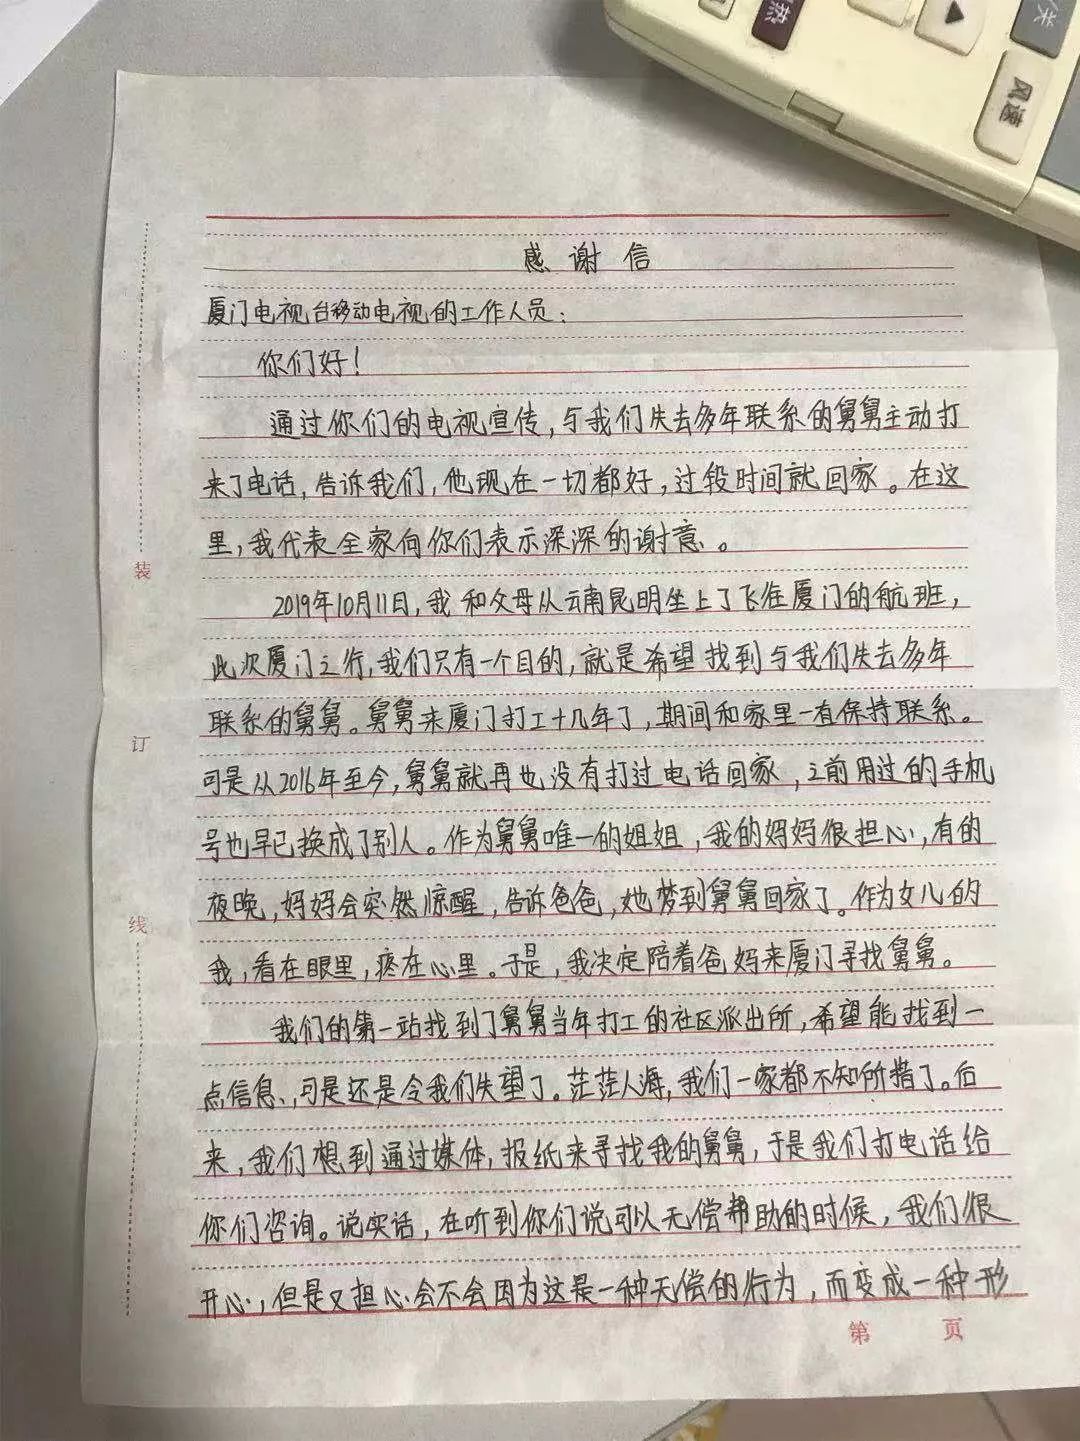 热
关
风速
感谢信
厦门电视台移动电视的工作人员:
你们好!
通过你们的电视宣传,与我们失去多年联系的舅舅主动打
来了电话,告诉我们,他现在一切都好,过段时间就回家。在这
里,我代表全家向你们表示深深的谢意。
2019年10月11日,我和父母从云南昆明坐上了飞往厦门的航班,
此次厦门之行,我们只有一个目的,就是希望找到与我们失去多年
联系的舅舅。舅舅来厦门打工十几年了,期间和家里一直保持联系。
可是从2016年至今,舅舅就再也没有打过电话回家,之前用过的手机
号也早已换成了别人。作为舅舅唯一的姐姐,我的妈妈很担心,有的
夜晚,妈妈会突然惊醒,告诉爸爸,她梦到舅舅回家了。作为女儿的
我,看在眼里,疼在心里。于是,我决定陪着爸妈来厦门寻找舅舅。
我们的第一站找到了舅舅当年打工的社区派出所,希望能找到一
点信息,可是还是令我们失望了。茫茫人海,我们一家都不知所措了。后
来,我们想到通过媒体,报纸来寻找我的舅舅,于是我们打电话给
你们咨询。说实话,在听到你们说可以无偿帮助的时候,我们很
开心,但是又担心会不会因为这是一种无偿的行为,而变成一种形
第 页
装
订
线